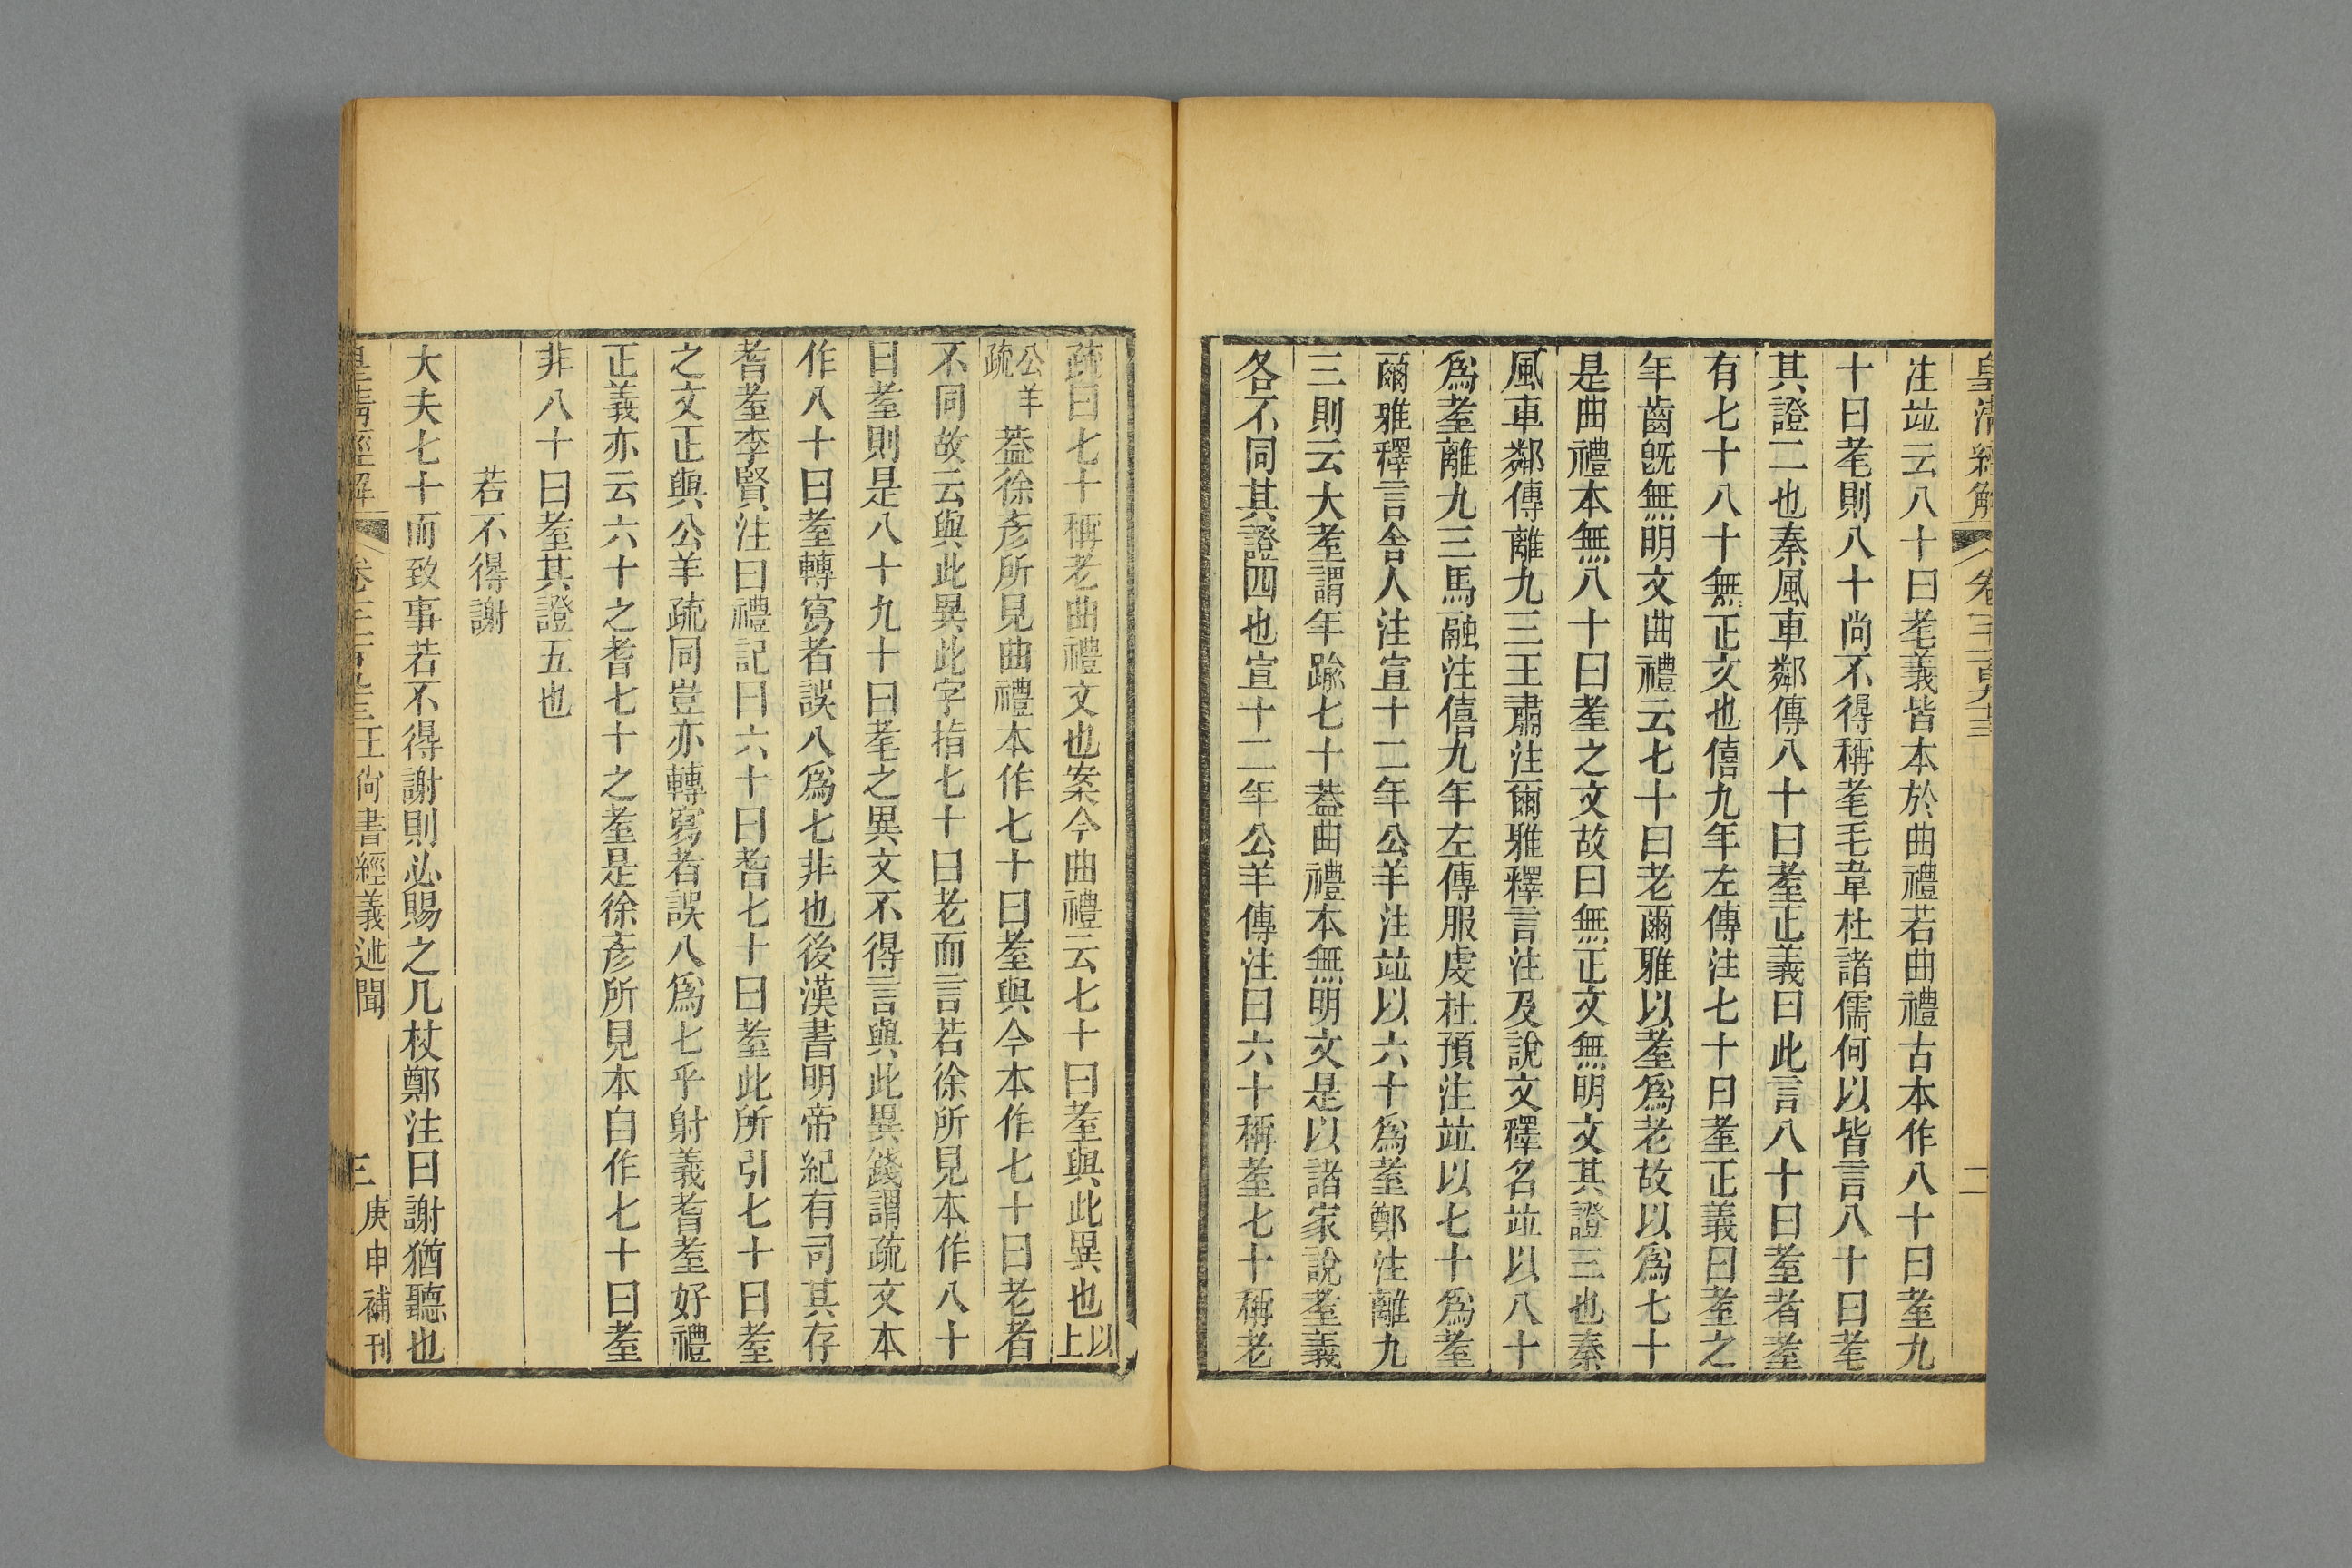 皇清經解 卷一千一百九十三 二
注竝云八十曰耄義皆本於曲禮若曲禮古本作八十曰耋九
十曰耄則八十尚不得稱耄毛韋杜諸儒何以皆言八十曰耄
其證二也秦風車鄰傳八十曰耋正義曰此言八十曰耋者耋
有七十八十無正文也僖九年左傳注七十曰耋正義曰耋之
年齒旣無明文曲禮云七十曰老爾雅以耋爲老故以爲七十
是曲禮本無八十曰耋之文故曰無正文無明文其證三也秦
風車鄰傳離九三王肅注爾雅釋言注及說文釋名竝以八十
爲耋離九三馬融注僖九年左傳服虔杜預注竝以七十爲耋
爾雅釋言舍人注宣十二年公羊注竝以六十爲耋鄭注離九
三則云大耋謂年踰七十蓋曲禮本無明文是以諸家說耋義
各不同其證四也宣十二年公羊傳注曰六十稱耋七十稱老
疏曰七十稱老曲禮文也案今曲禮云七十曰耋與此異也以上
公羊疏蓋徐彥所見曲禮本作七十曰耋與今本作七十曰老者
不同故云與此異此字指七十曰老而言若徐所見本作八十
曰耋則是八十九十曰耄之異文不得言與此異錢謂疏文本
作八十曰耋轉寫者誤八爲七非也後漢書明帝紀有司其存
耆耋李賢注曰禮記曰六十曰耆七十曰耋此所引七十曰耋
之文正與公羊疏同豈亦轉寫者誤八爲七乎射義耆耋好禮
正義亦云六十之耆七十之耋是徐彥所見本自作七十曰耋
非八十曰耋其證五也
若不得謝
大夫七十而致事若不得謝則必賜之几杖鄭注曰謝猶聽也
皇清經解 卷一千一百九十三 王尚書經義述聞 三 庚申補刊